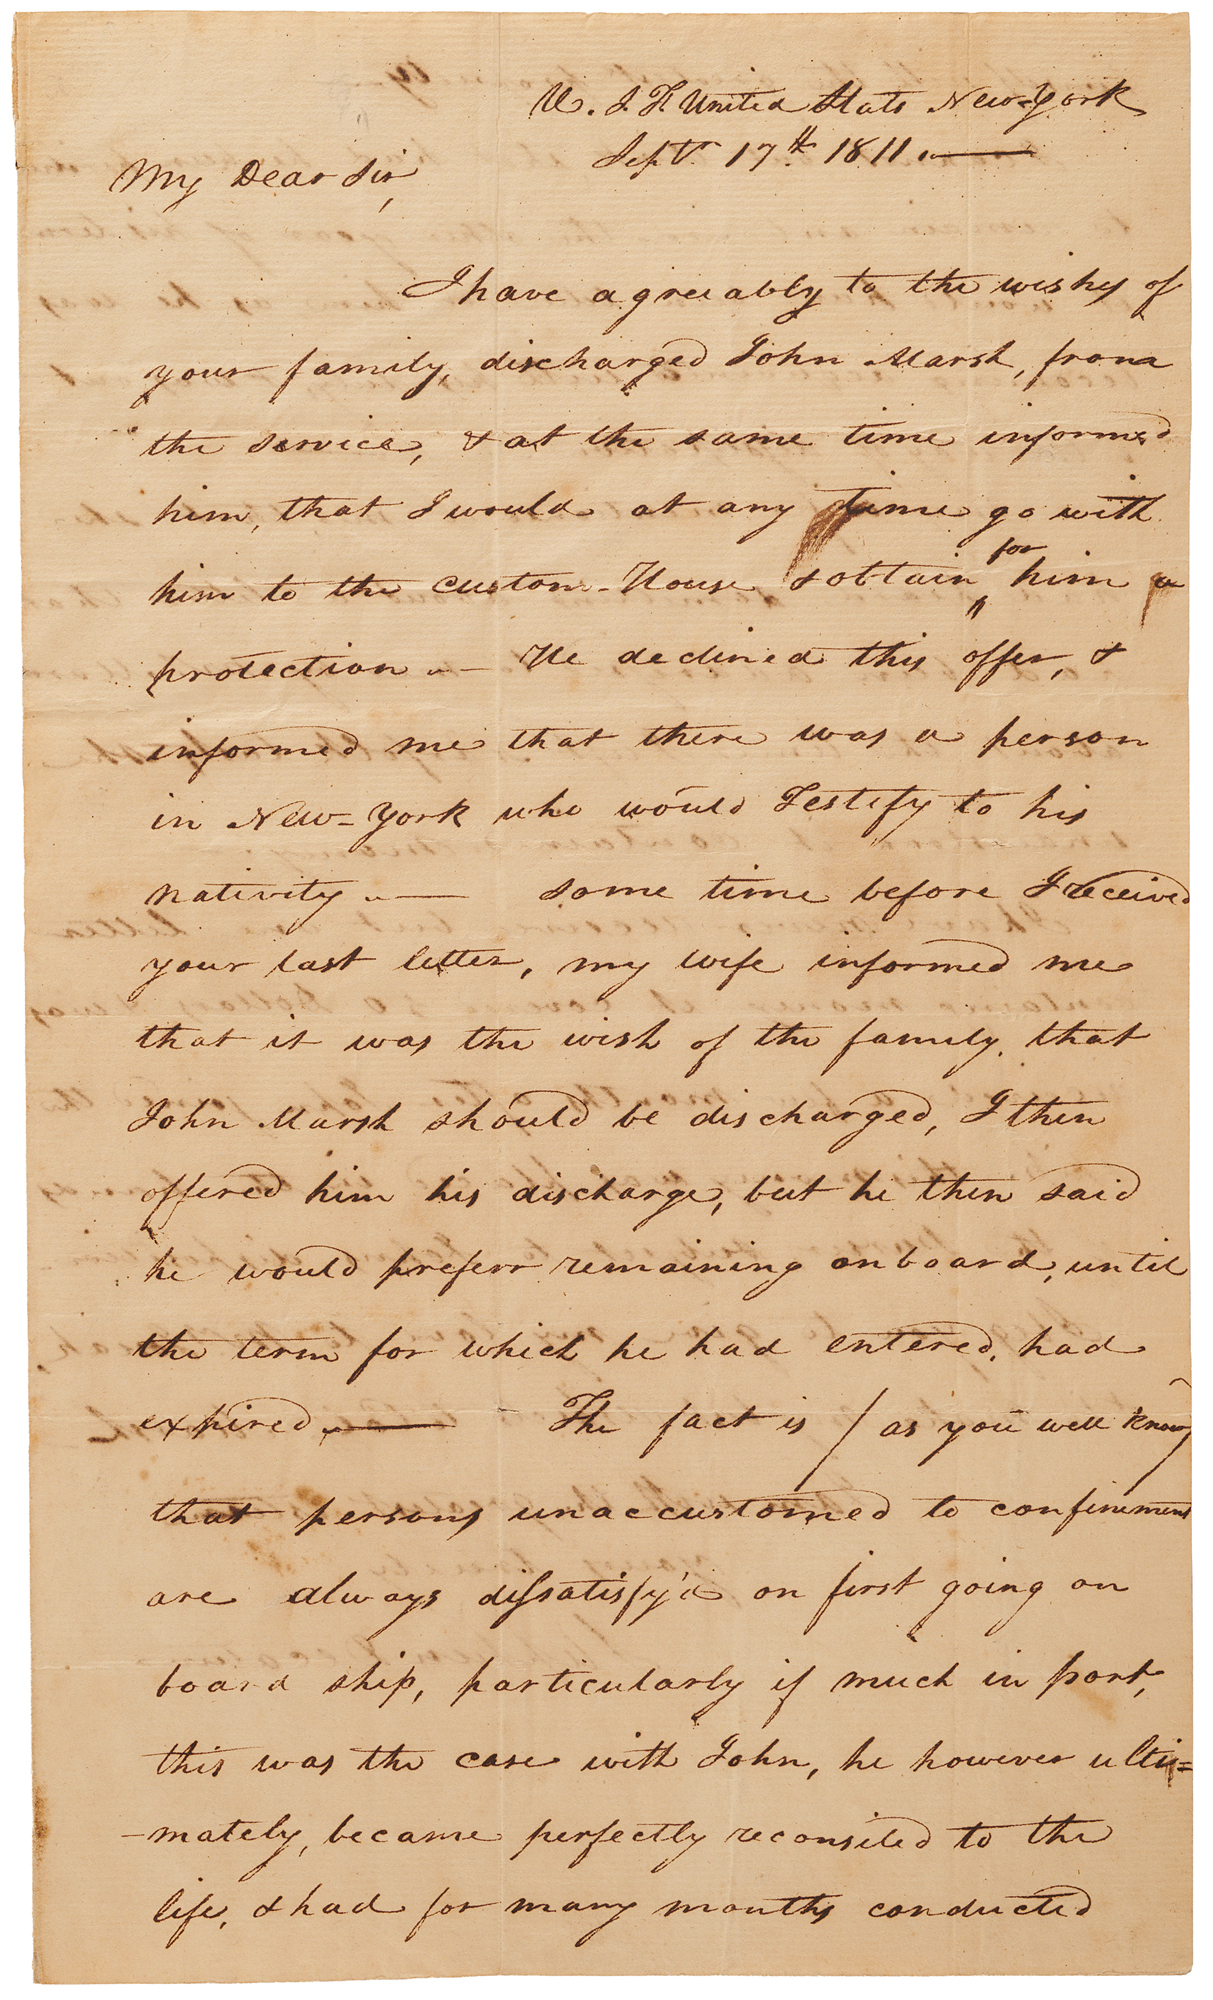 U. S. F. United States New-York
Septr. 17th. 1811.
My Dear Sir,
I have agreeably to the wishes of
your family, discharged John Marsh, from
the service, & at the same time informed
him, that I would at any time go with
him to the custom-House & obtain for him a
protection. — He declined this offer, &
informed me that there was a person
in New-York who would Testify to his
nativity. — some time before I received
your last letter, my wife informed me
that it was the wish of the family, that
John Marsh should be discharged, I then
offered him his discharge, but he then said
he would preferr remaining on board, until
the term for which he had entered, had
expired. — The fact is / as you well know /
that persons unaccustomed to confinement
are always dissatisfy'd on first going on
board ship, particularly if much in port,
this was the case with John, he however ulti=
-mately, became perfectly reconsiled to the
life, & had for many months conducted